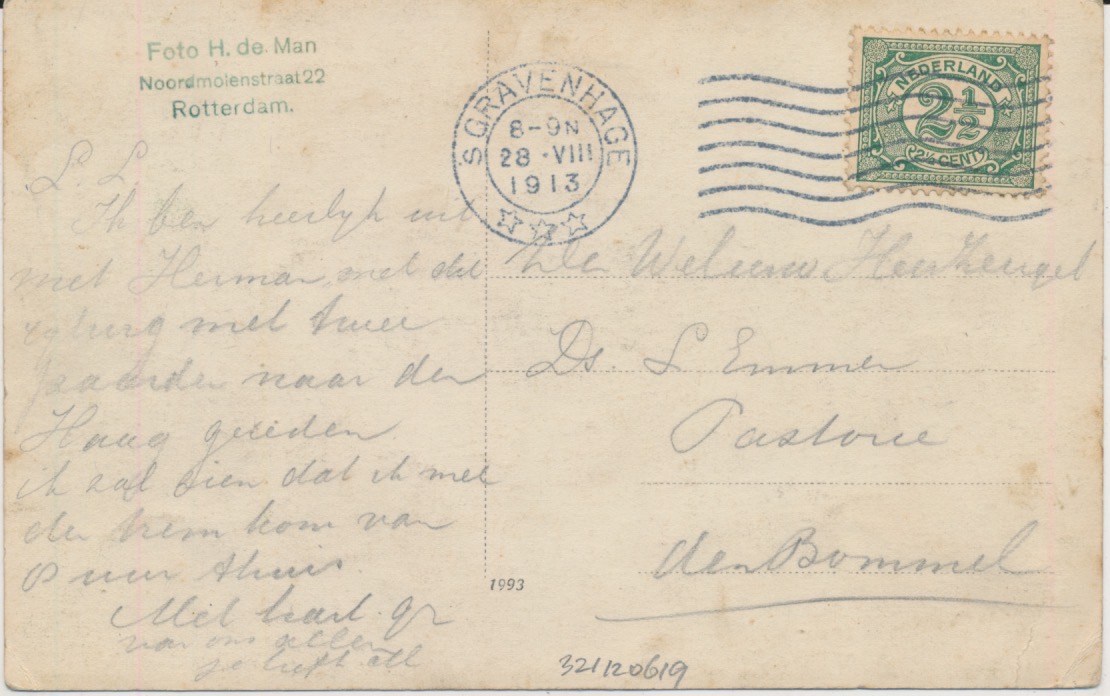 Foto H. de Man
Noordmolenstraat 22
Rotterdam.
S GRAVENHAGE
8-9N
28 · VIII
1913
NEDERLAND
2 1/2
2½ CENT
L. L.
Ik ben heerlijk uit
met Herman met
met twee
paarden naar den
Haag gereden
ik zal zien dat ik met
de trem kom van
8 uur thuis.
Met hart. gr
van ons allen
je liefh.
Den Weleerw. Heer
Ds. L Emmen
Pastorie
den Bommel
1993
321120619